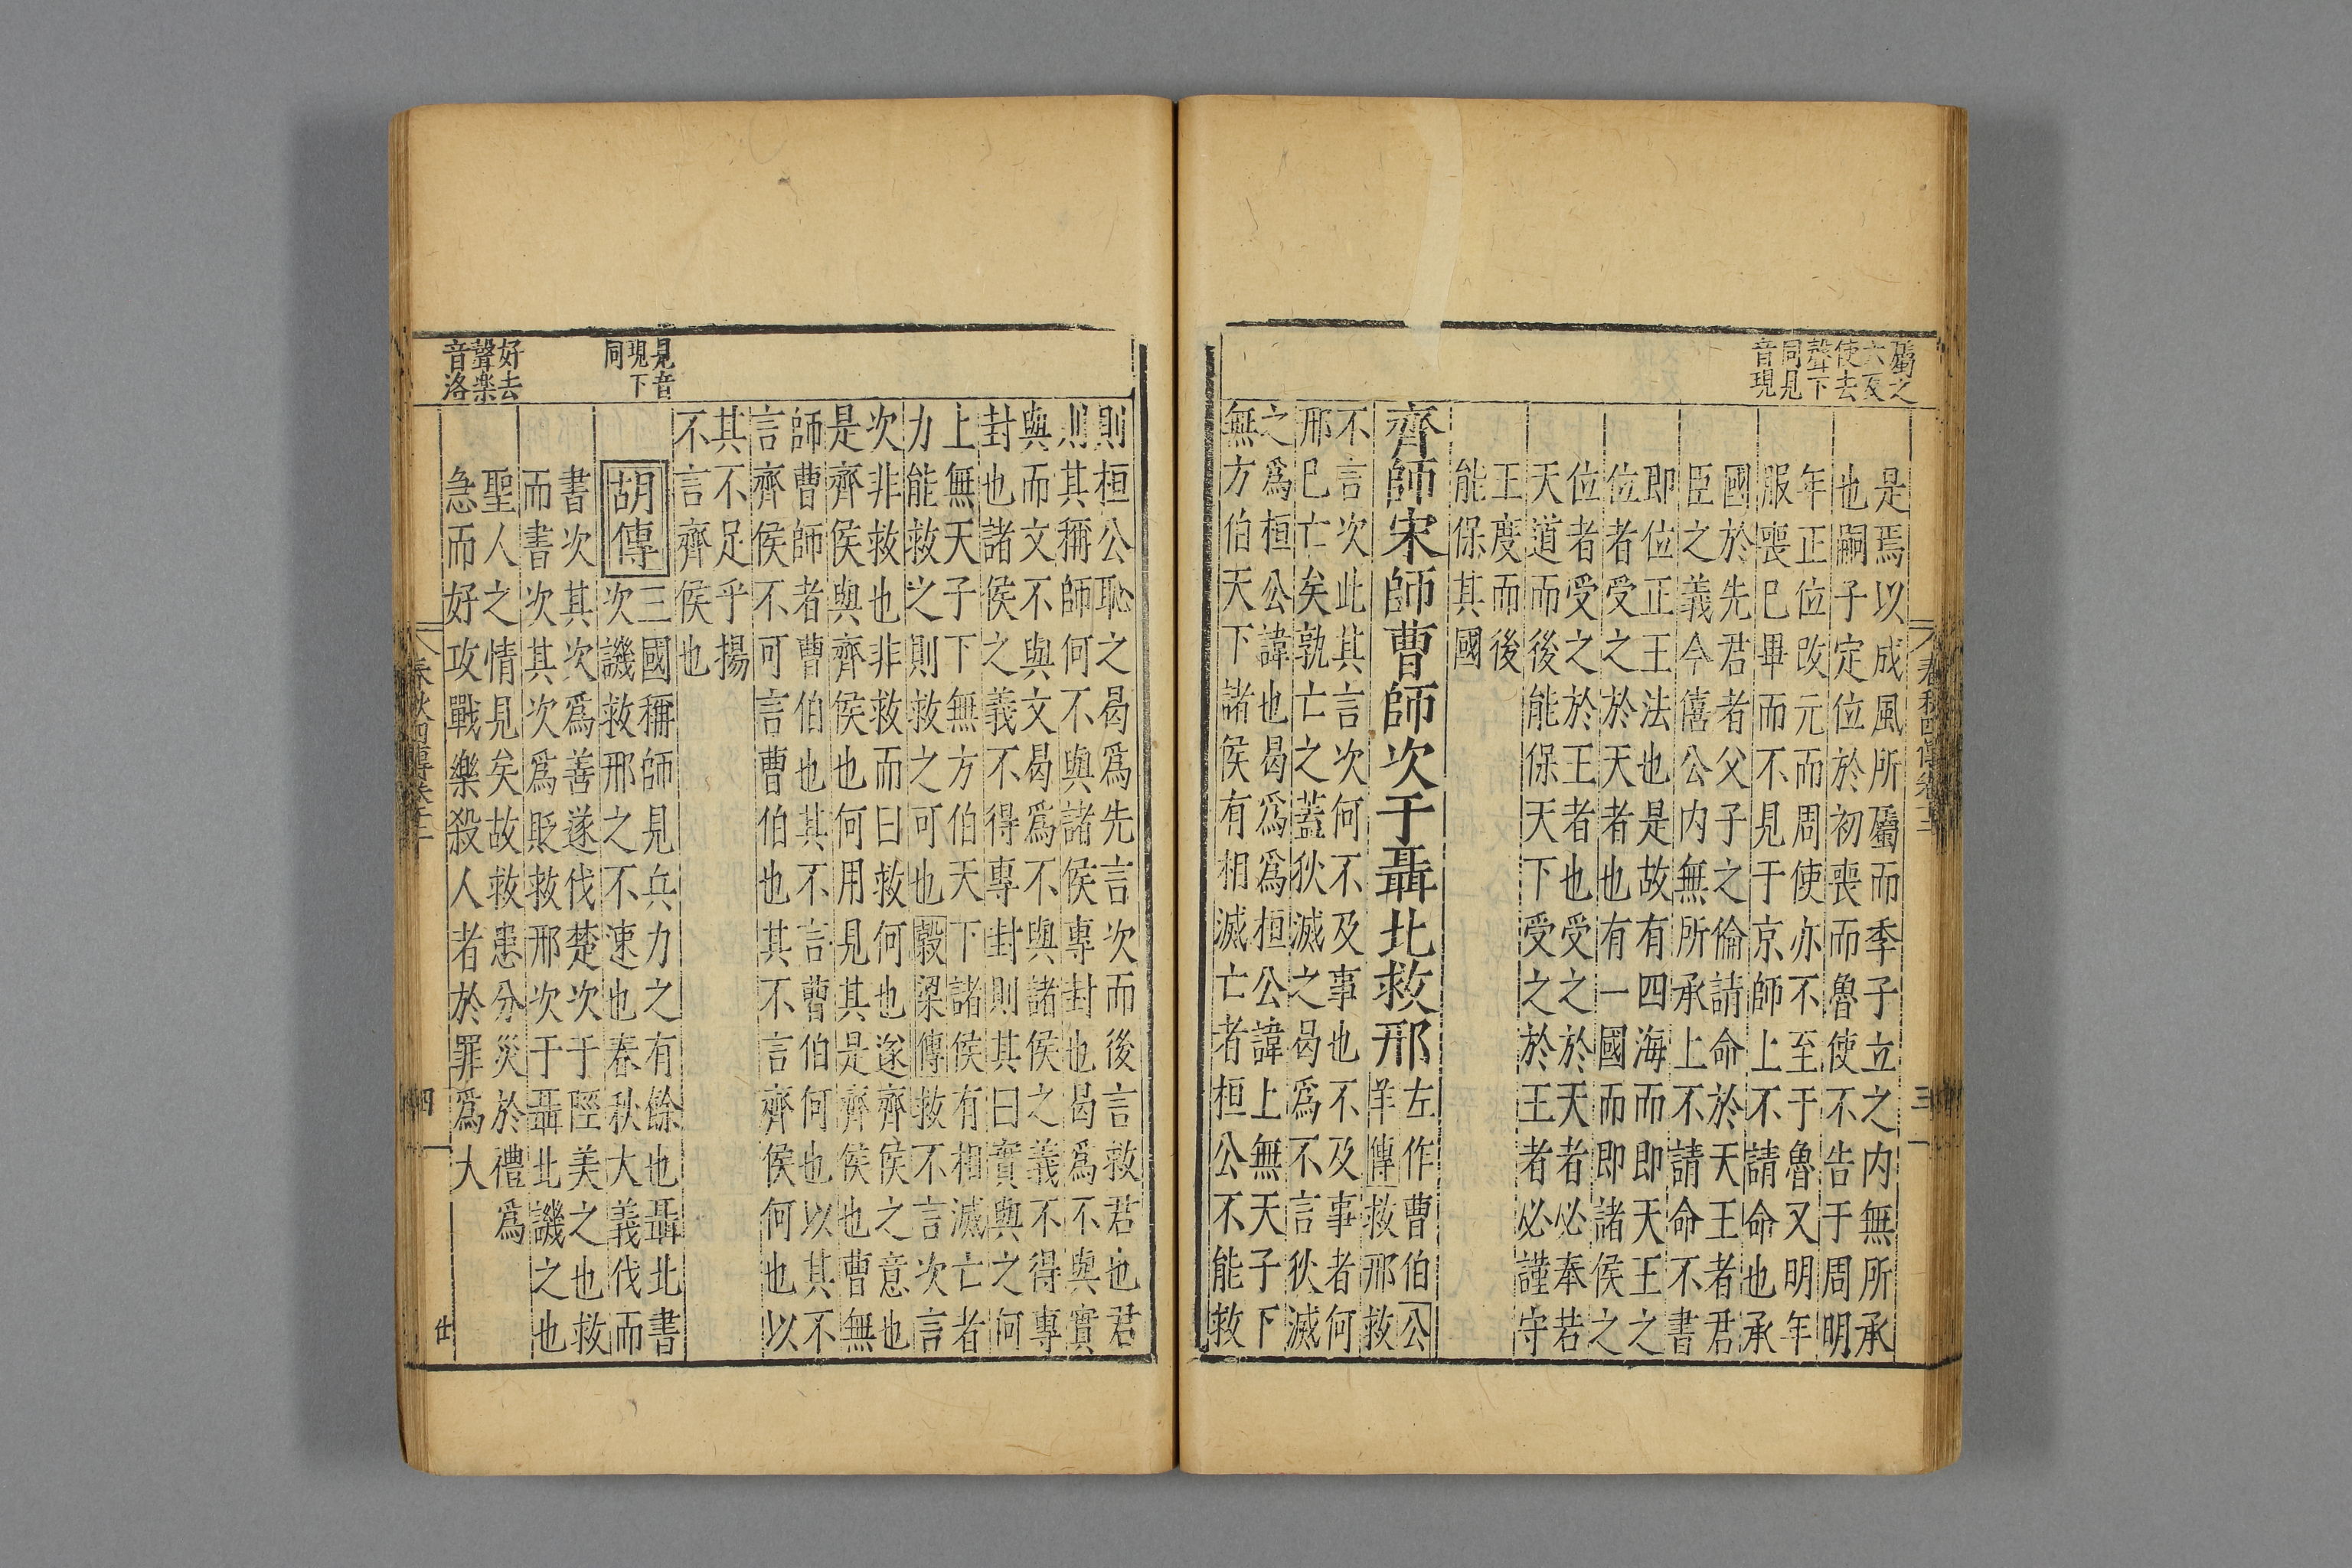 屬之
六反
使去
聲下
同見
音現
是焉以成風所屬而季子立之内無所承
也嗣子定位於初喪而魯使不告于周明
年正位改元而周使亦不至于魯又明年
服喪已畢而不見于京師上不請命也承
國於先君者父子之倫請命於天王者君
臣之義今僖公内無所承上不請命不書
即位正王法也是故有四海而即天王之
位者受之於天者也有一國而即諸侯之
位者受之於王者也受之於天者必奉若
天道而後能保天下受之於王者必謹守
王度而後
能保其國
齊師宋師曹師次于聶北救邢
左作曹伯公
羊傳救邢救
不言次此其言次何不及事也不及事者何
邢巳亡矣孰亡之蓋狄滅之曷爲不言狄滅
之爲桓公諱也曷爲爲桓公諱上無天子下
無方伯天下諸侯有相滅亡者桓公不能救
春秋四傳卷十二
三
則桓公恥之曷爲先言次而後言救君也君
則其稱師何不與諸侯專封也曷爲不與實
與而文不與文曷爲不與諸侯之義不得專
封也諸侯之義不得專封則其曰實與之何
上無天子下無方伯天下諸侯有相滅亡者
力能救之則救之可也穀梁傳救不言次言
次非救也非救而曰救何也遂齊侯之意也
是齊侯與齊侯也何用見其是齊侯也曹無
師曹師者曹伯也其不言曹伯何也以其不
言齊侯不可言曹伯也其不言齊侯何也以
其不足乎揚
不言齊侯也
見音
現下
同
胡傳
三國稱師見兵力之有餘也聶北書
次譏救邢之不速也春秋大義伐而
書次其次爲善遂伐楚次于陘美之也救
而書次其次爲貶救邢次于聶北譏之也
聖人之情見矣故救患分災於禮爲
急而好攻戰樂殺人者於罪爲大
好去
聲樂
音洛
春秋四傳卷十二
四
仕